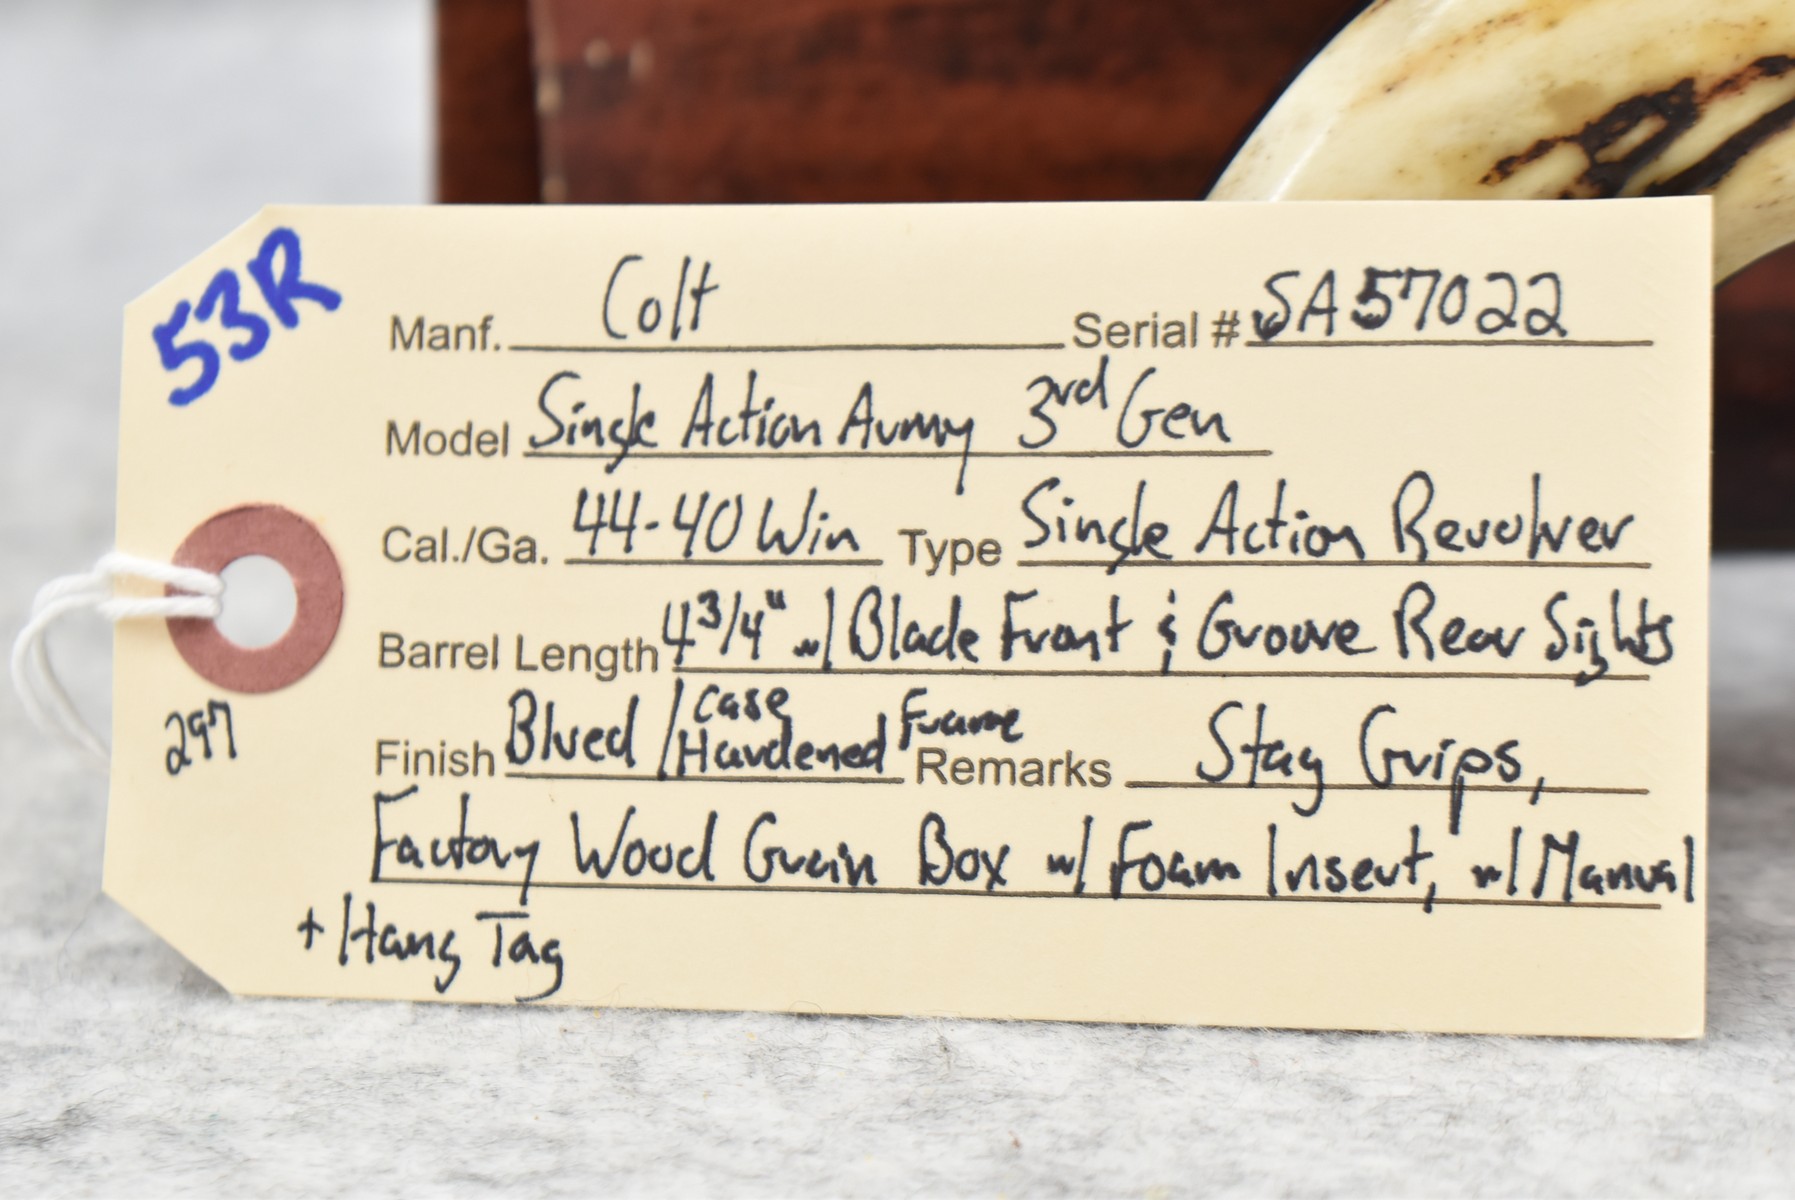 53R
Manf. Colt Serial # SA57022
Model Single Action Army 3rd Gen
Cal./Ga. 44-40 Win Type Single Action Revolver
Barrel Length 4 3/4" w/ Blade Front & Groove Rear Sights
Finish Blued / Case Hardened Frame Remarks Stag Grips,
297
Factory Wood Grain Box w/ Foam Insert, w/ Manual
+ Hang Tag